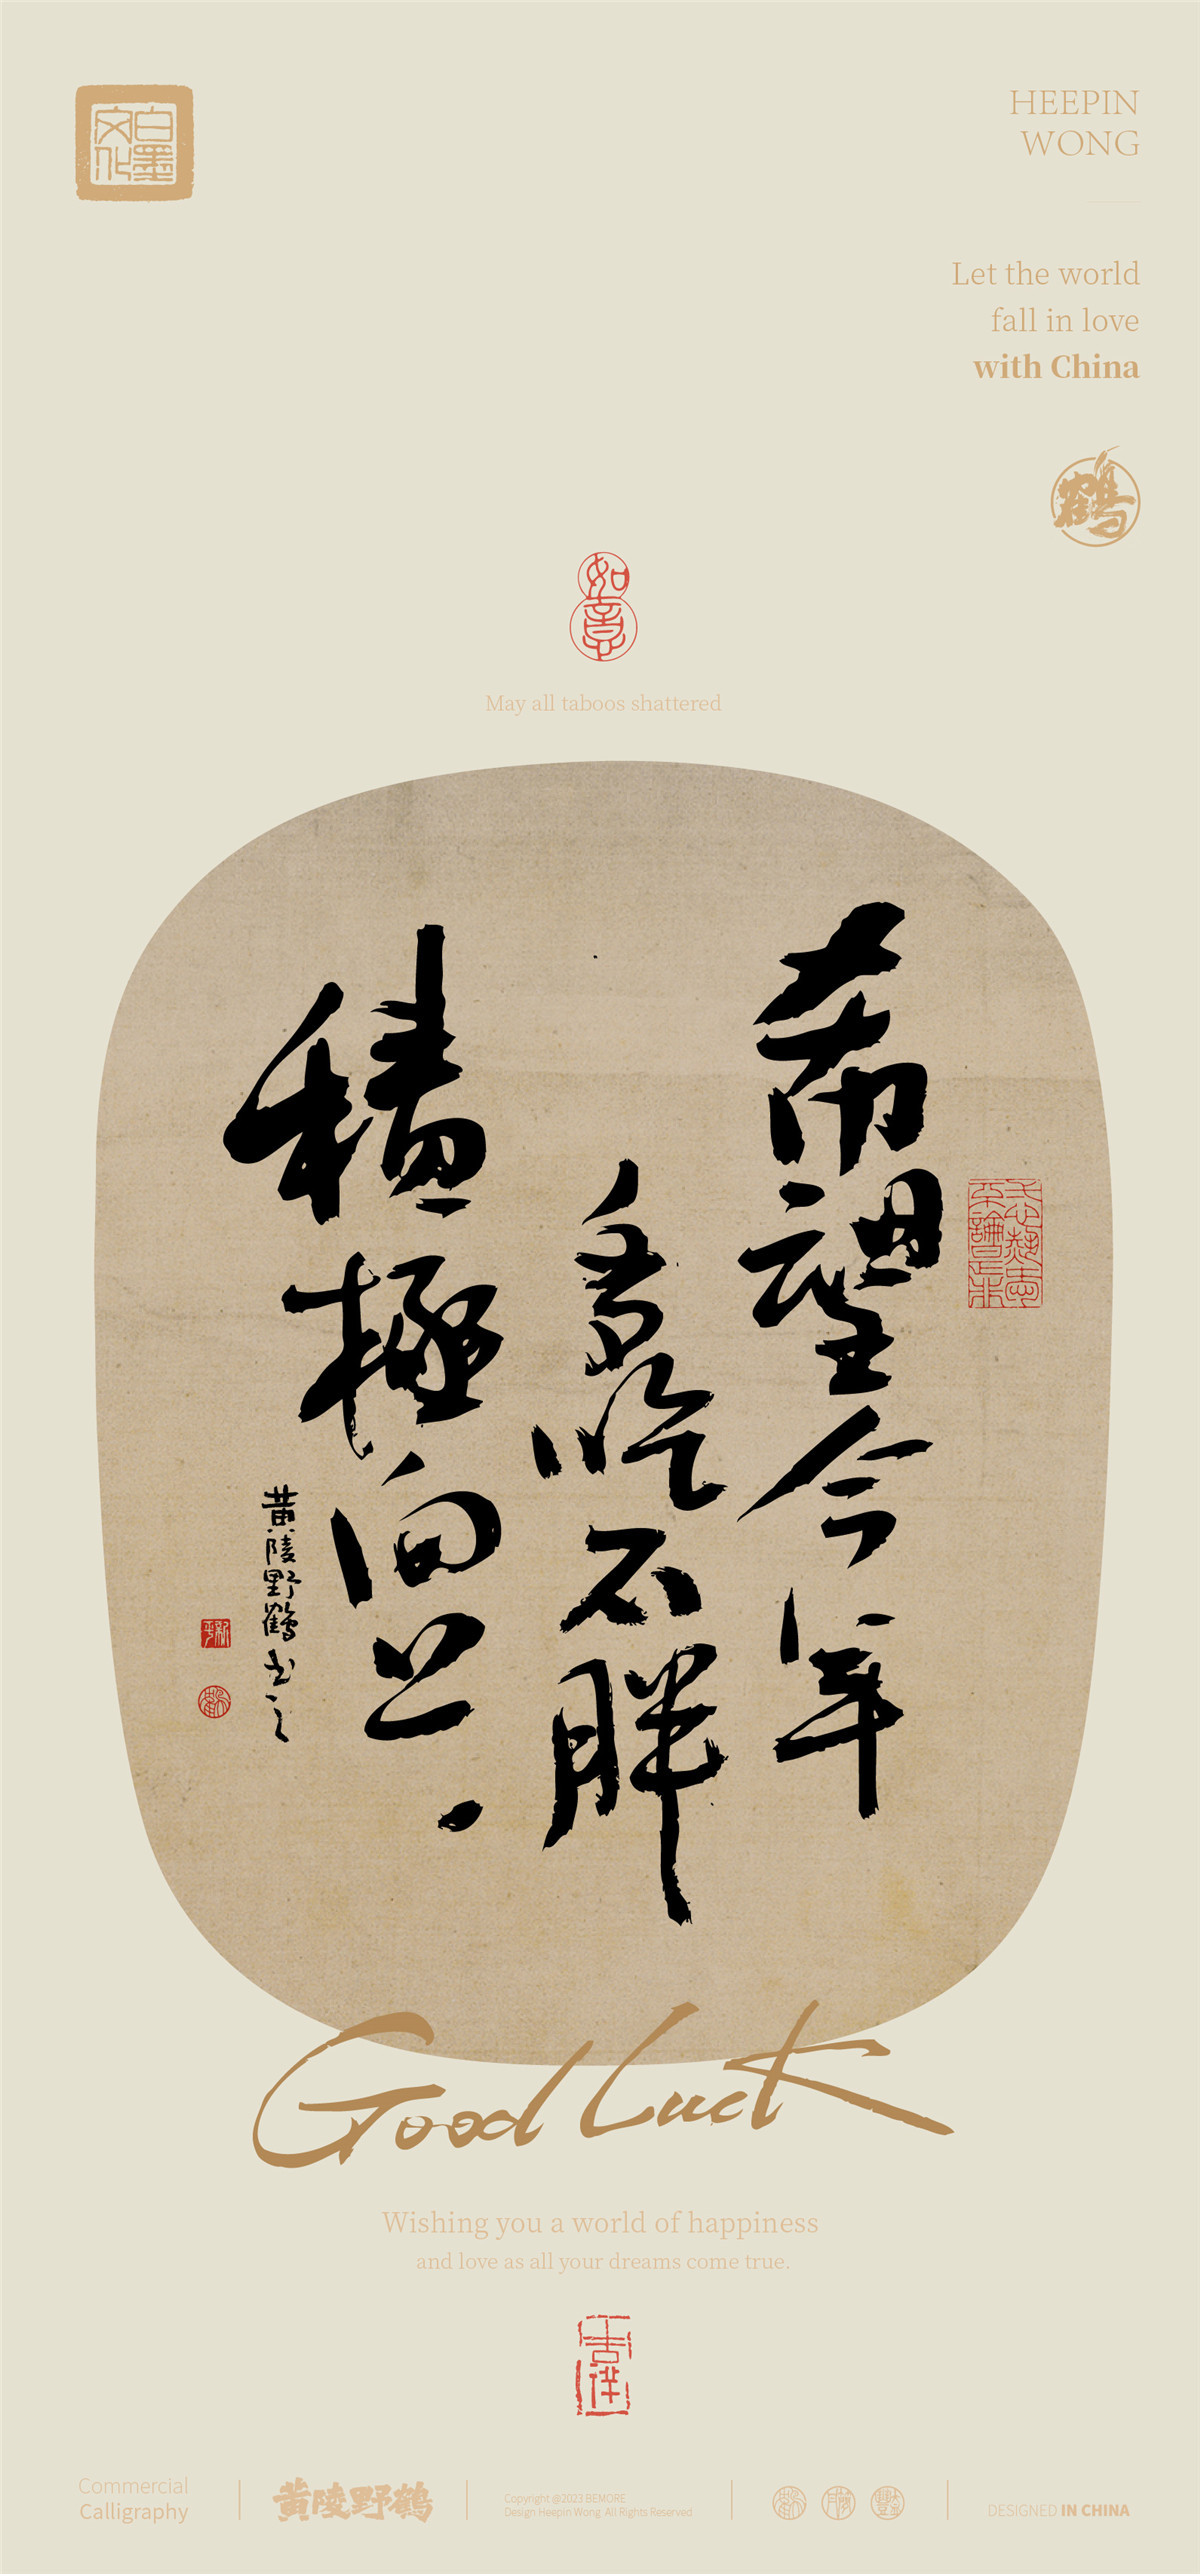 白墨
文化
HEEPIN
WONG
Let the world
fall in love
with China
鶴
如
意
May all taboos shattered
希望今年
多吃不胖
積極向上
黄陵野鶴书之
Good Luck
Wishing you a world of happiness
and love as all your dreams come true.
吉祥
Commercial
Calligraphy
黄陵野鶴
Copyright @2023 BEMORE
Design Heepin Wong. All Rights Reserved
DESIGNED IN CHINA